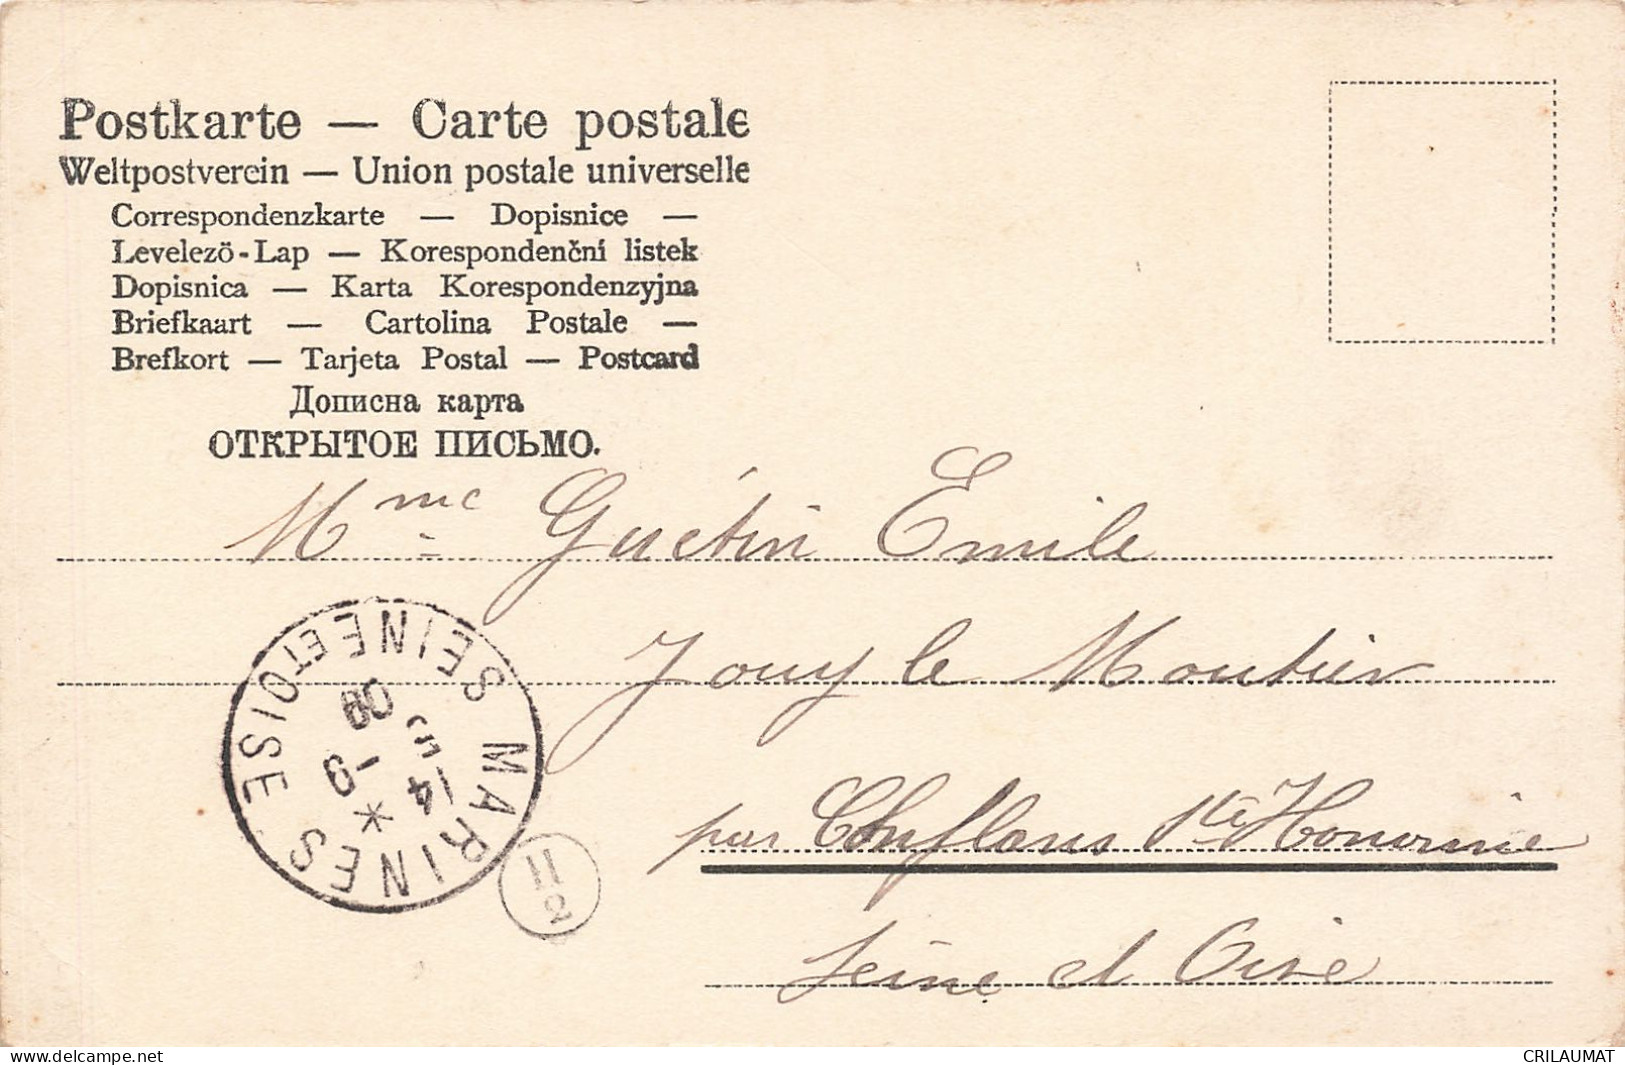 Postkarte — Carte postale
Weltpostverein — Union postale universelle
Correspondenzkarte — Dopisnice —
Levelező-Lap — Korespondenční listek
Dopisnica — Karta Korespondenzyjna
Briefkaart — Cartolina Postale —
Brefkort — Tarjeta Postal — Postcard
Дописна карта
ОТКРЫТОЕ ПИСЬМО.
Mme Guétin Emile
Jouy le Moutier
par Conflans Ste Honorine
Seine et Oise
MARINES SEINE ET OISE
14
11
2
delcampe.net
CRILAUMAT